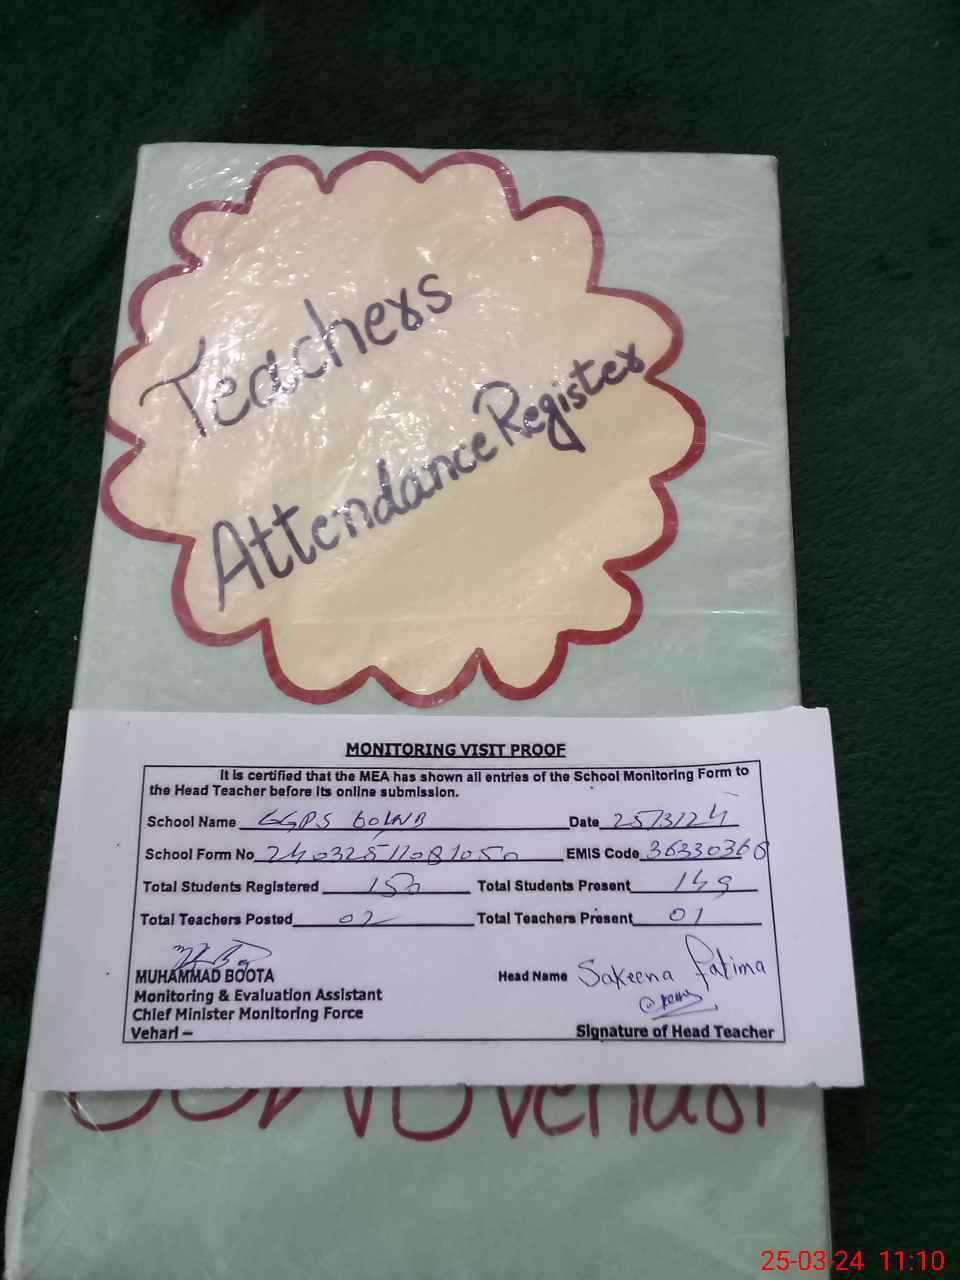 Teachers
Attendance Register
MONITORING VISIT PROOF
It is certified that the MEA has shown all entries of the School Monitoring Form to
the Head Teacher before its online submission.
School Name GGPS 60/WB Date 25/3/24
School Form No EMIS Code 36330366
Total Students Registered 150 Total Students Present 149
Total Teachers Posted 02 Total Teachers Present 01
MUHAMMAD BOOTA Head Name Sakeena Fatima
Monitoring & Evaluation Assistant
Chief Minister Monitoring Force
Vehari – Signature of Head Teacher
25-03-24 11:10